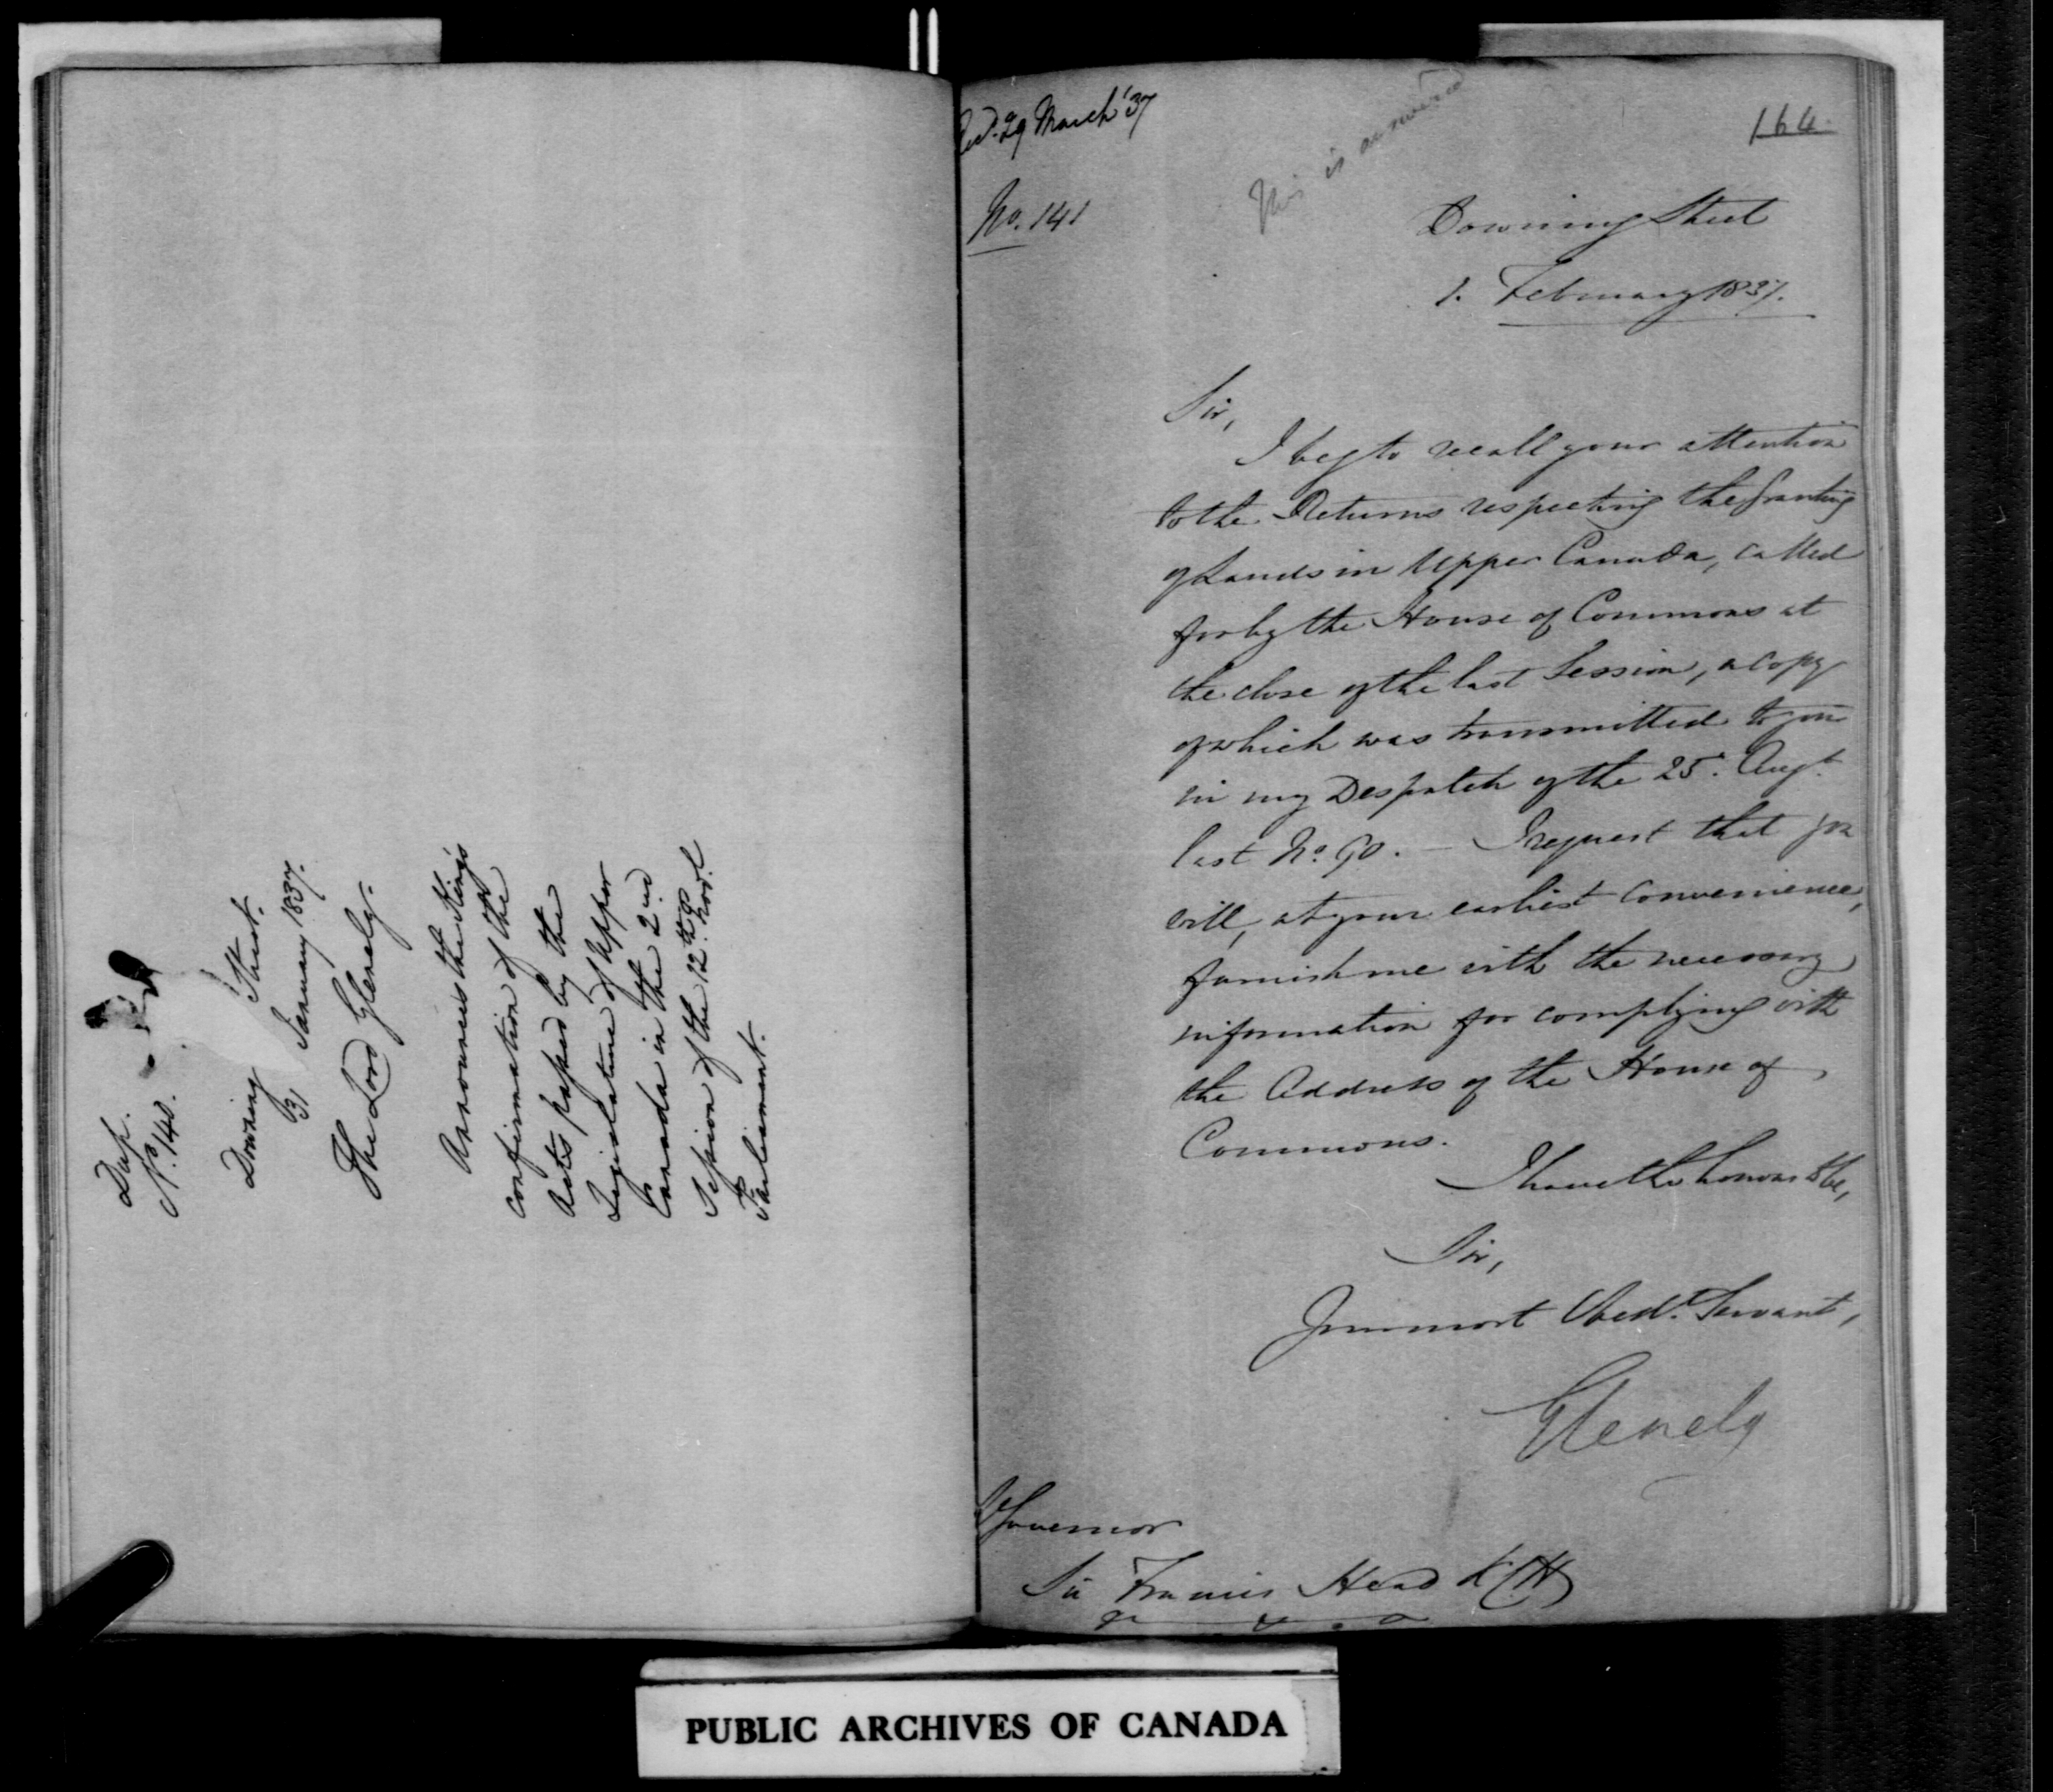 Dup.
No. 140.
Downing Street.
31 January 1837.
The Lord Glenelg.
Announces the King's
confirmation of the
Acts passed by the
Legislature of Upper
Canada in the 2nd
Session of the 12th Provl
Parliament.
Recd. 29 March '37
This is answered
164
No. 141
Downing Street
1. February 1837.
Sir,
I beg to recall your attention
to the Returns respecting the granting
of Lands in Upper Canada, called
for by the House of Commons at
the close of the last Session, a copy
of which was transmitted to you
in my Despatch of the 25. Augt.
last No. 90. — I request that you
will, at your earliest convenience,
furnish me with the necessary
information for complying with
the Address of the House of
Commons.
I have the honor to be,
Sir,
Your most Obedt. Servant,
Glenelg
Governor
Sir Francis Head KCH
PUBLIC ARCHIVES OF CANADA